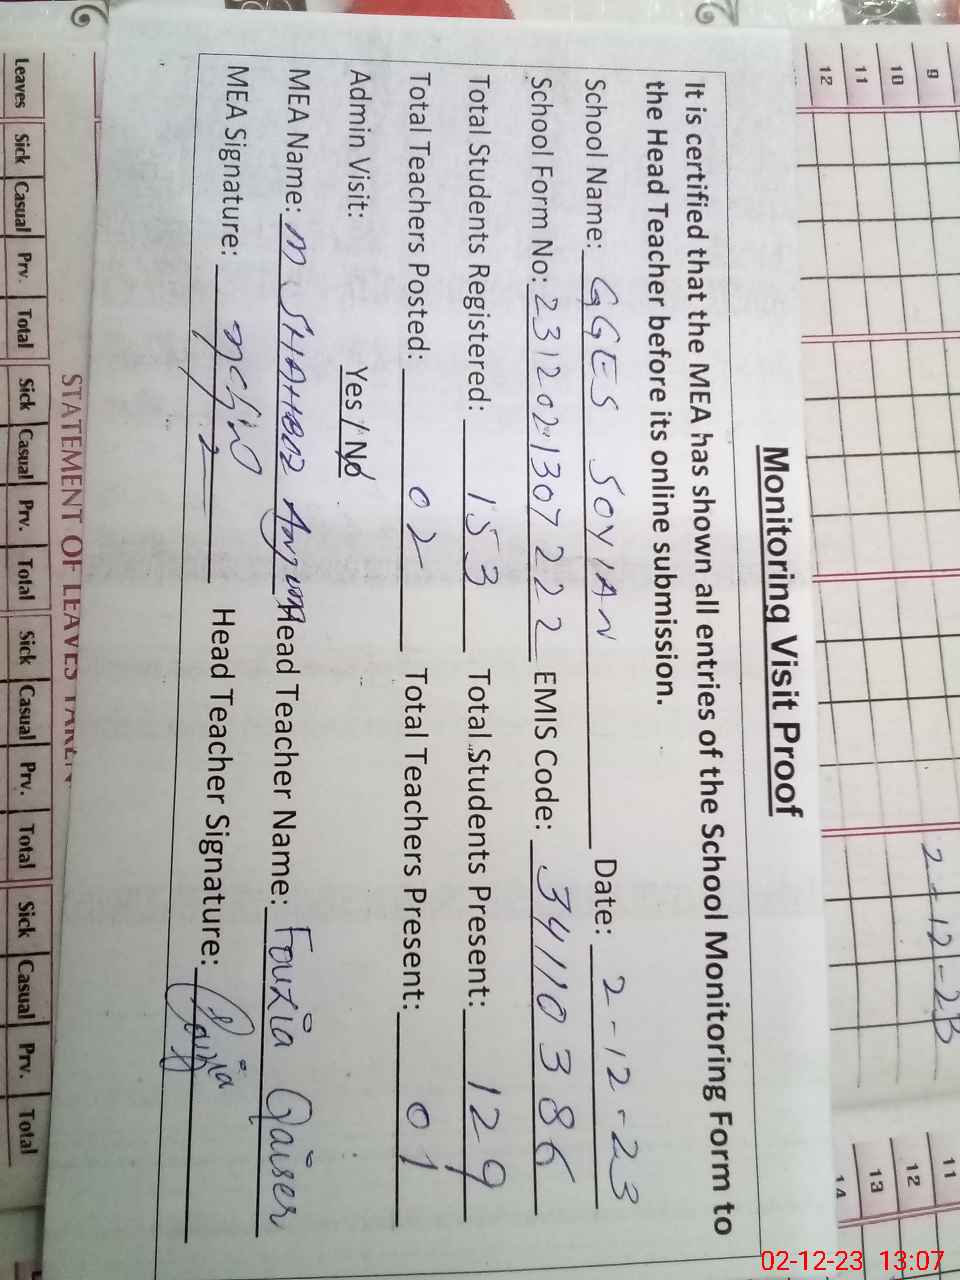 Monitoring Visit Proof
It is certified that the MEA has shown all entries of the School Monitoring Form to
the Head Teacher before its online submission.
School Name: GGES SOYIAN Date: 2-12-23
School Form No: 2312021307222 EMIS Code: 34110386
Total Students Registered: 153 Total Students Present: 129
Total Teachers Posted: 02 Total Teachers Present: 01
Admin Visit: Yes / No
MEA Name: M SHAHBAZ Anjum Head Teacher Name: Fouzia Qaiser
MEA Signature: Head Teacher Signature: Fouzia
9
10
11
12
2-12-23
11
12
13
14
STATEMENT OF LEAVES TAKEN
Leaves Sick Casual Prv. Total Sick Casual Prv. Total Sick Casual Prv. Total Sick Casual Prv. Total
02-12-23 13:07